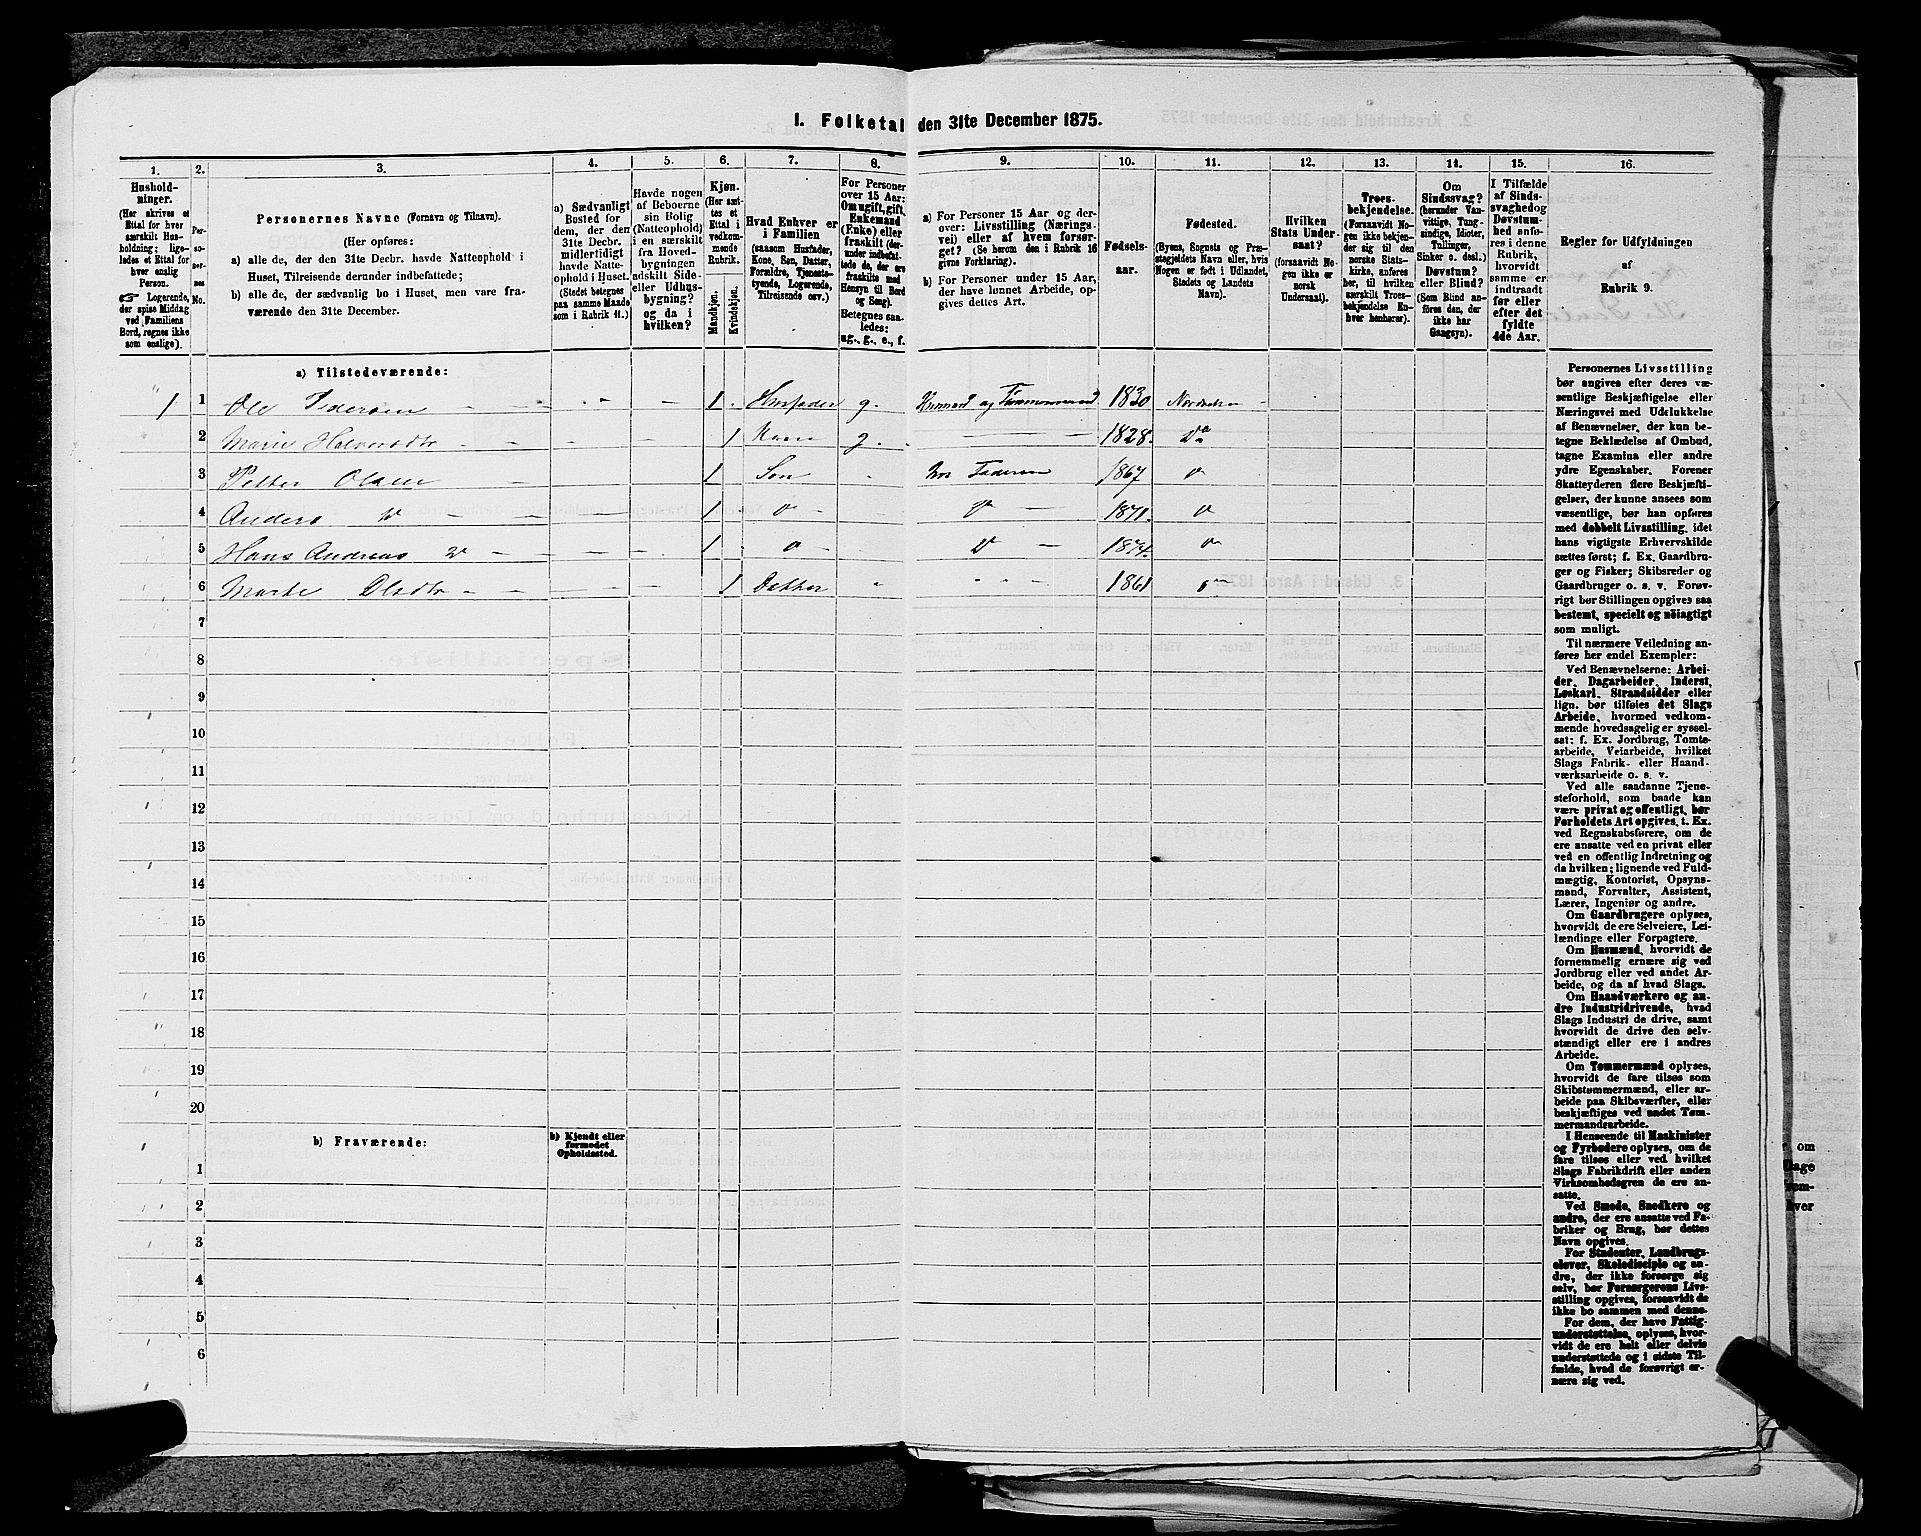 1. Folketal den 31te December 1875.
1. 2. 3. 4. 5. 6. 7. 8. 9. 10. 11. 12. 13. 14. 15. 16.
Hushold-
ninger.
(Her skrives et
Ettal for hver
særskilt Hus-
holdning; lige-
ledes et Ettal for
hver enslig
Person.
☞ Logerende,
der spise Middag
ved Familiens
Bord, regnes ikke
som enslige).
Per-
so-
ner-
nes
No.
Personernes Navne (Fornavn og Tilnavn).
(Her opføres:
a) alle de, der den 31te Decbr. havde Natteophold i
Huset, Tilreisende derunder indbefattede;
b) alle de, der sædvanlig bo i Huset, men vare fra-
værende den 31te December.
a) Sædvanligt
Bosted for
dem, der den
31te Decbr.
midlertidigt
havde Natte-
ophold i Huset.
(Stedet betegnes
paa samme Maade
som i Rubrik 11.)
Havde nogen
af Beboerne
sin Bolig
(Natteophold)
i en særskilt
fra Hoved-
bygningen
adskilt Side-
eller Udhus-
bygning?
og da i
hvilken?
Kjøn.
(Her sæt-
tes et
Ettal i
vedkom-
mende
Rubrik.
Mandkjøn.
Kvindekjøn.
Hvad Enhver er
i Familien
(saasom Husfader,
Kone, Søn, Datter,
Forældre, Tjeneste-
tyende, Logerende,
Tilreisende osv.)
For Personer
over 15 Aar:
Om ugift, gift,
Enkemand
(Enke) eller
fraskilt (der-
under indbefat-
tede de, der ere
fraskilte med
Hensyn til Bord
og Seng).
Betegnes saa-
ledes:
ug., g., e., f.
a) For Personer 15 Aar og der-
over: Livsstilling (Nærings-
vei) eller af hvem forsør-
get? (Se herom den i Rubrik 16
givne Forklaring).
b) For Personer under 15 Aar,
der have lønnet Arbeide, op-
gives dettes Art.
Fødsels-
aar.
Fødested.
(Byens, Sognets og Præ-
stegjeldets Navn eller, hvis
Nogen er født i Udlandet,
Stedets og Landets
Navn).
Hvilken
Stats Under-
saat?
(forsaavidt No-
gen ikke er
norsk
Undersaat).
Troes-
bekjendelse.
(Forsaavidt No-
gen ikke bekjen-
der sig til den
norske Stats-
kirke, anføres
her, til hvilken
særskilt Troes-
bekjendelse En-
hver henhører).
Om
Sindssvag?
(herunder Van-
vittige, Tung-
sindige, Idioter,
Tullinger,
Sinker o. desl.)
Døvstum?
eller Blind?
(Som Blind an-
føres den, der
ikke har
Gangsyn).
I Tilfælde
af Sinds-
svaghed og
Døvstum-
hed anfø-
res i denne
Rubrik,
hvorvidt
samme er
indtraadt
før eller
efter det
fyldte
4de Aar.
Regler for Udfyldningen
af
Rubrik 9.
a) Tilstedeværende:
1 1 Ole Pedersen 1 Husfader g. Husmand og Tømmermand 1830
2 Marie Halvorsdtr 1 Kone g. 1828. Do
3 Petter Olsen 1 Søn 1867
4 Anders 1 1871.
5 Hans Andreas 1 1874.
6 Marte Olsdtr 1 Datter 1861
7
8
9
10
11
12
13
14
15
16
17
18
19
20
b) Fraværende:
b) Kjendt eller
formodet
Opholdssted.
1
2
3
4
5
6
Personernes Livsstilling
bør angives efter deres væ-
sentlige Beskjæftigelse eller
Næringsvei med Udelukkelse
af Benævnelser, der kun be-
tegne Beklædelse af Ombud,
tagne Examina eller andre
ydre Egenskaber. Forener
Skatteyderen flere Beskjæfti-
gelser, der kunne ansees som
væsentlige, bør han opføres
med dobbelt Livsstilling, idet
hans vigtigste Erhvervskilde
sættes først; f. Ex. Gaardbru-
ger og Fisker; Skibsreder og
Gaardbruger o. s. v. Forøv-
rigt bør Stillingen opgives saa
bestemt, specielt og nöiagtigt
som muligt.
Til nærmere Veiledning an-
føres her endel Exempler:
Ved Benævnelserne: Arbei-
der, Dagarbeider, Inderst,
Løskarl, Strandsidder eller
lign. bør tilføies det Slags
Arbeide, hvormed vedkom-
mende hovedsagelig er syssel-
sat; f. Ex. Jordbrug, Tomte-
arbeide, Veiarbeide, hvilket
Slags Fabrik- eller Haand-
værksarbeide o. s. v.
Ved alle saadanne Tjene-
steforhold, som baade kan
være privat og offentligt, bør
Forholdets Art opgives, t. Ex.
ved Regnskabsførere, om de
ere ansatte ved en privat eller
ved en offentlig Indretning og
da hvilken; lignende ved Fuld-
mægtig, Kontorist, Opsyns-
mand, Forvalter, Assistent,
Lærer, Ingeniør og andre.
Om Gaardbrugere oplyses,
hvorvidt de ere Selveiere, Lei-
lændinge eller Forpagtere.
Om Husmænd, hvorvidt de
fornemmelig ernære sig ved
Jordbrug eller ved andet Ar-
beide, og da af hvad Slags.
Om Haandværkere og an-
dre Industridrivende, hvad
Slags Industri de drive, samt
hvorvidt de drive den selv-
stændigt eller ere i andres
Arbeide.
Om Tømmermænd oplyses,
hvorvidt de fare tilsøs som
Skibstømmermænd, eller ar-
beide paa Skibsværfter, eller
beskjæftiges ved andet Tøm-
mermandsarbeide.
I Henseende til Maskinister
og Fyrbødere oplyses, om de
fare tilsøs eller ved hvilket
Slags Fabrikdrift eller anden
Virksomhedsgren de ere an-
satte.
Ved Smede, Snedkere og
andre, der ere ansatte ved Fa-
briker og Brug, bør dettes
Navn opgives.
For Studenter, Landbrugs-
elever, Skoledisciple og an-
dre, der ikke forsørge sig
selv, bør Forsørgerens Livs-
stilling opgives, forsaavidt de
ikke bo sammen med denne.
For dem, der have Fattig-
understøttelse, oplyses, hvor-
vidt de ere helt eller delvis
understøttede og i sidste Til-
fælde, hvad de forøvrigt er-
nære sig ved.